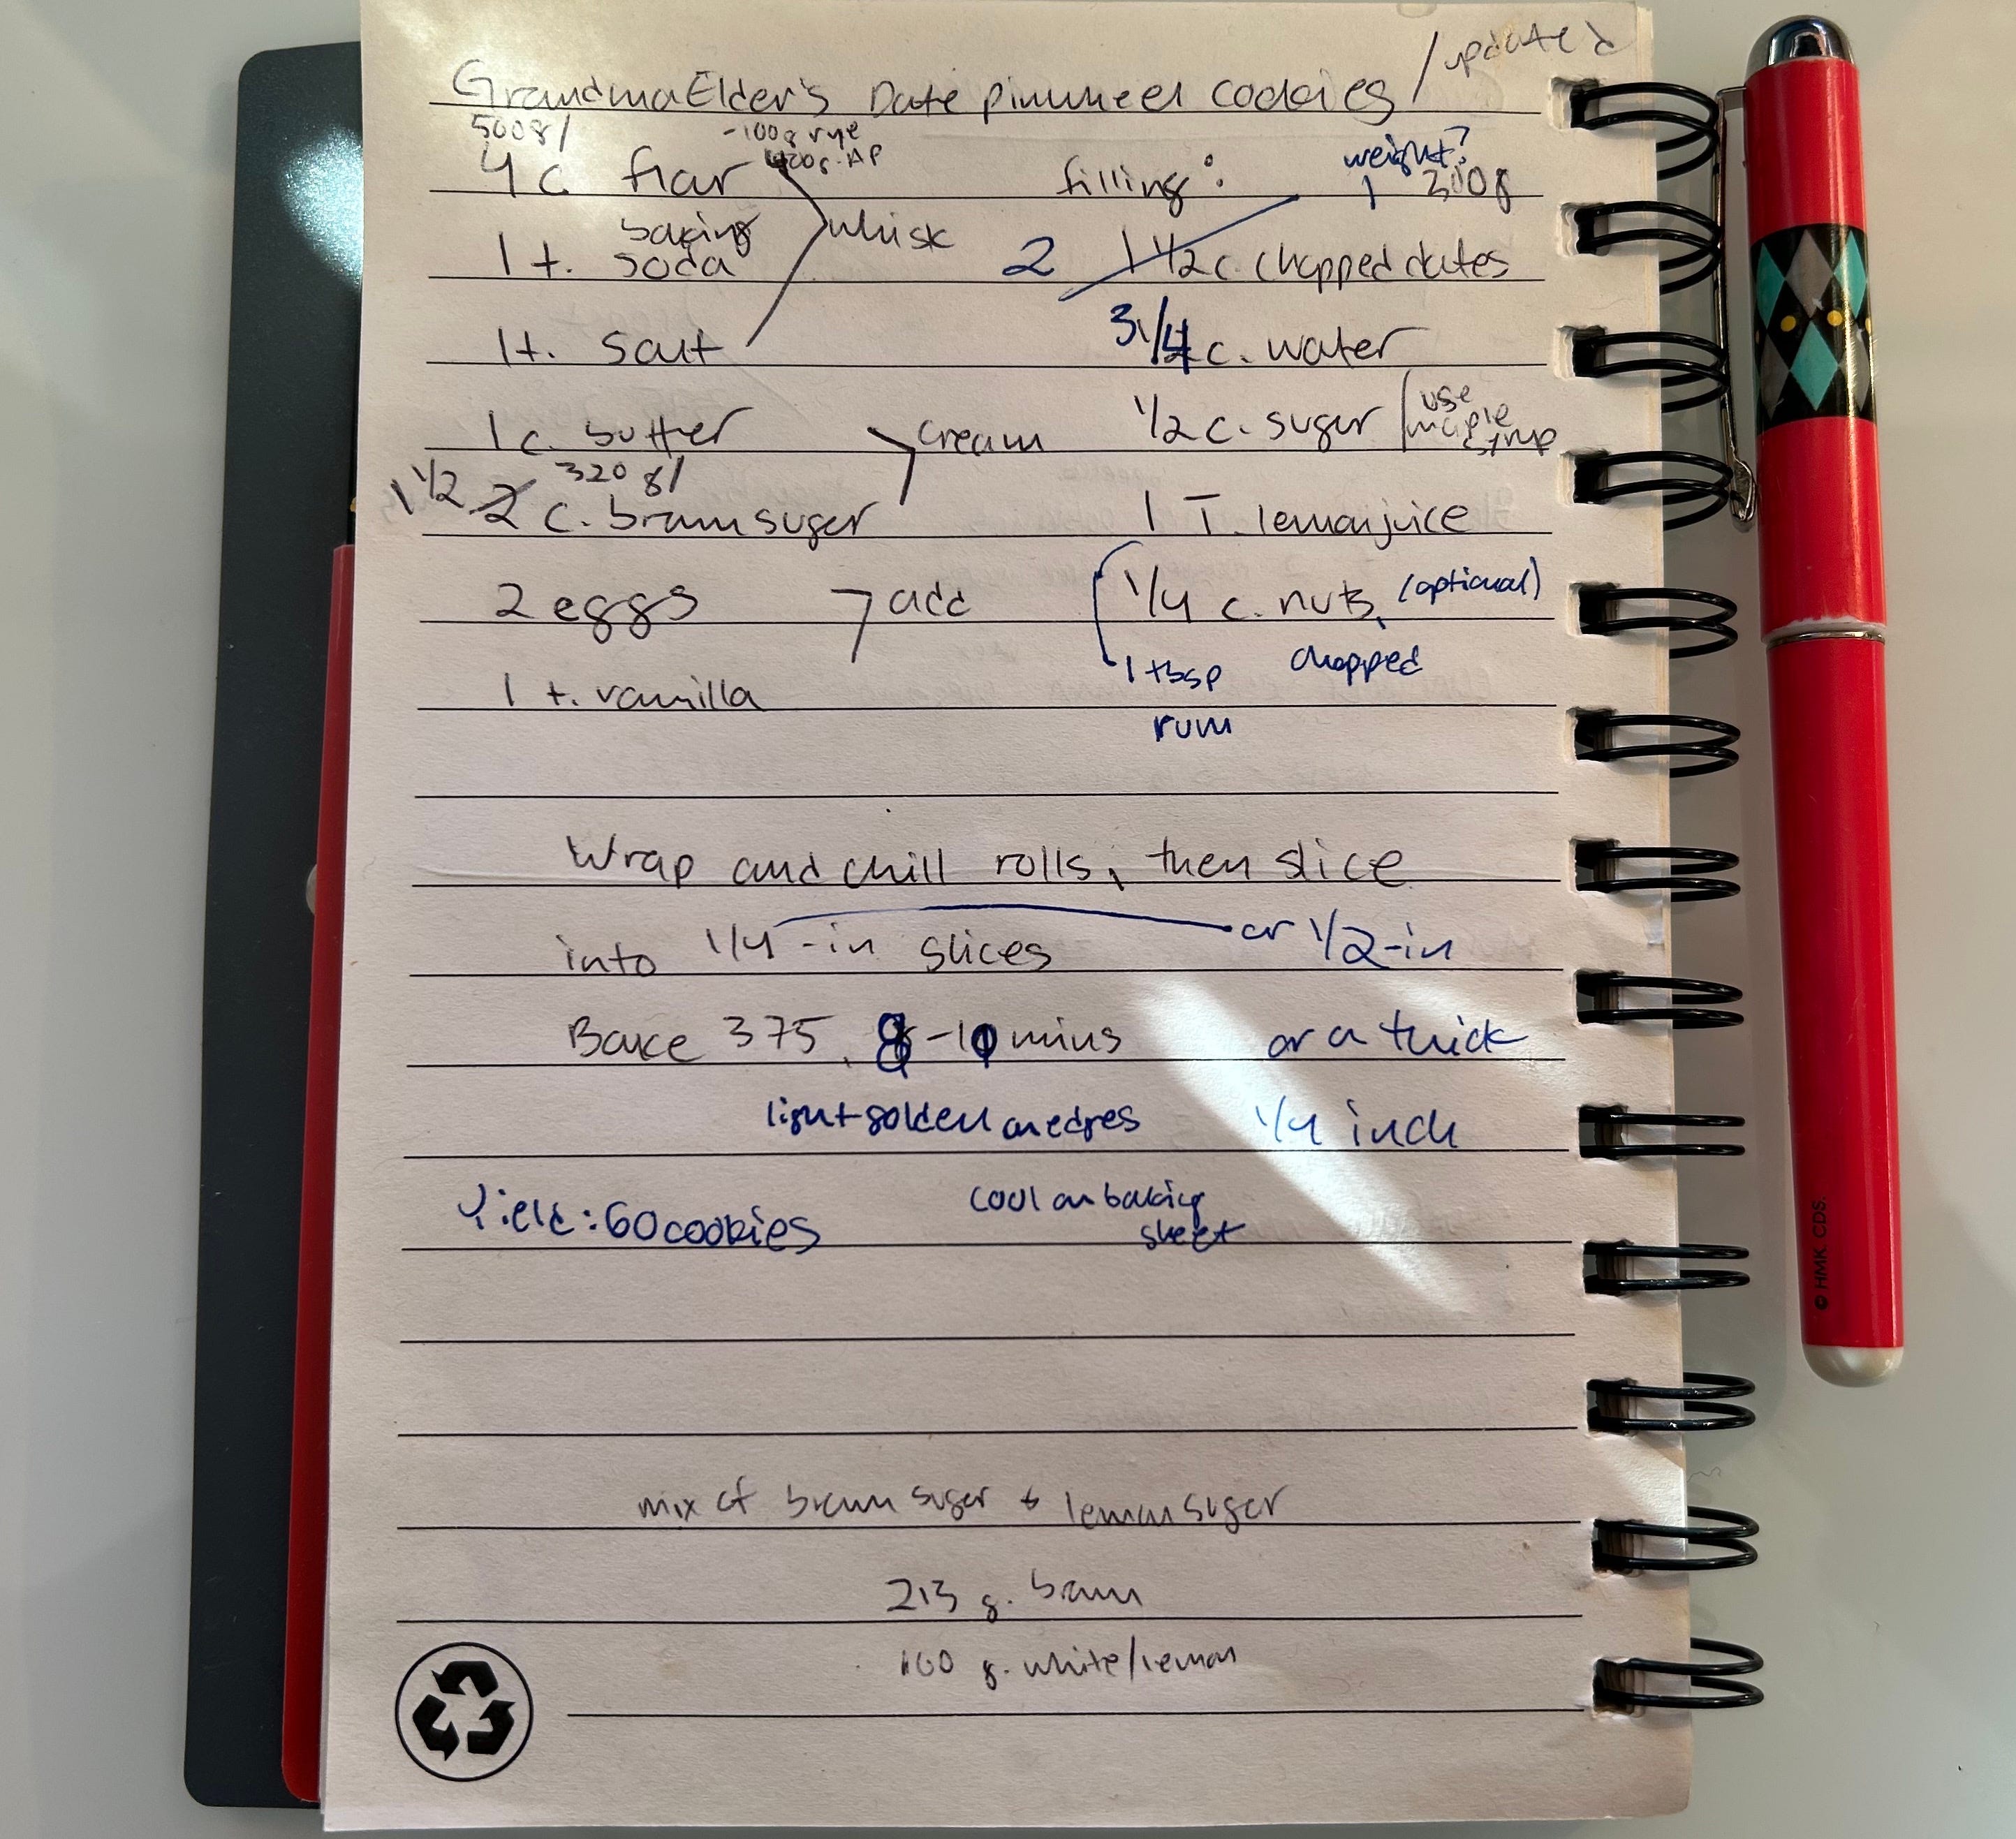 Grandma Elder's Date pinwheel cookies / updated
500g/
-100g rye
400g. AP
4 c. flour
whisk
1 t. baking soda
1 t. salt
1 c. butter
cream
320 g/
1 1/2 2 c. brown suger
2 eggs
add
1 t. vanilla
filling:
weight?
300g
2 1 1/2 c. chopped dates
3/4 c. water
1/2 c. suger / use maple syrup
1 T. lemon juice
1/4 c. nuts, (optional)
chopped
1 tbsp
rum
Wrap and chill rolls, then slice
into 1/4-in slices or 1/2-in
Bake 375, 8-10 mins or a thick
light golden on edges 1/4 inch
Yield: 60 cookies
cool on baking
sheet
mix of brown suger & lemon suger
213 g. brown
160 g. white/lemon
© HMK. CDS.